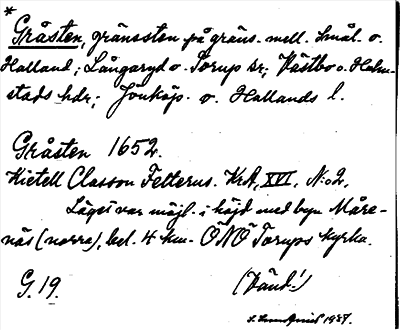 *
Gråsten, gränssten på gräns. mell. Smål. o.
Halland; Långaryd o. Torup sr; Västbo o. Halm-
stads hdr; Jönköp. o. Hallands l.
Gråsten 1652.
Kietell Classon Felterus. KrA, XVI, N:o 2,
Läget var möjl. i höjd med byn Måre-
näs (norra), bel. 4 km. ÖNÖ Torups kyrka.
G. 19.
(Vänd!)
1937.